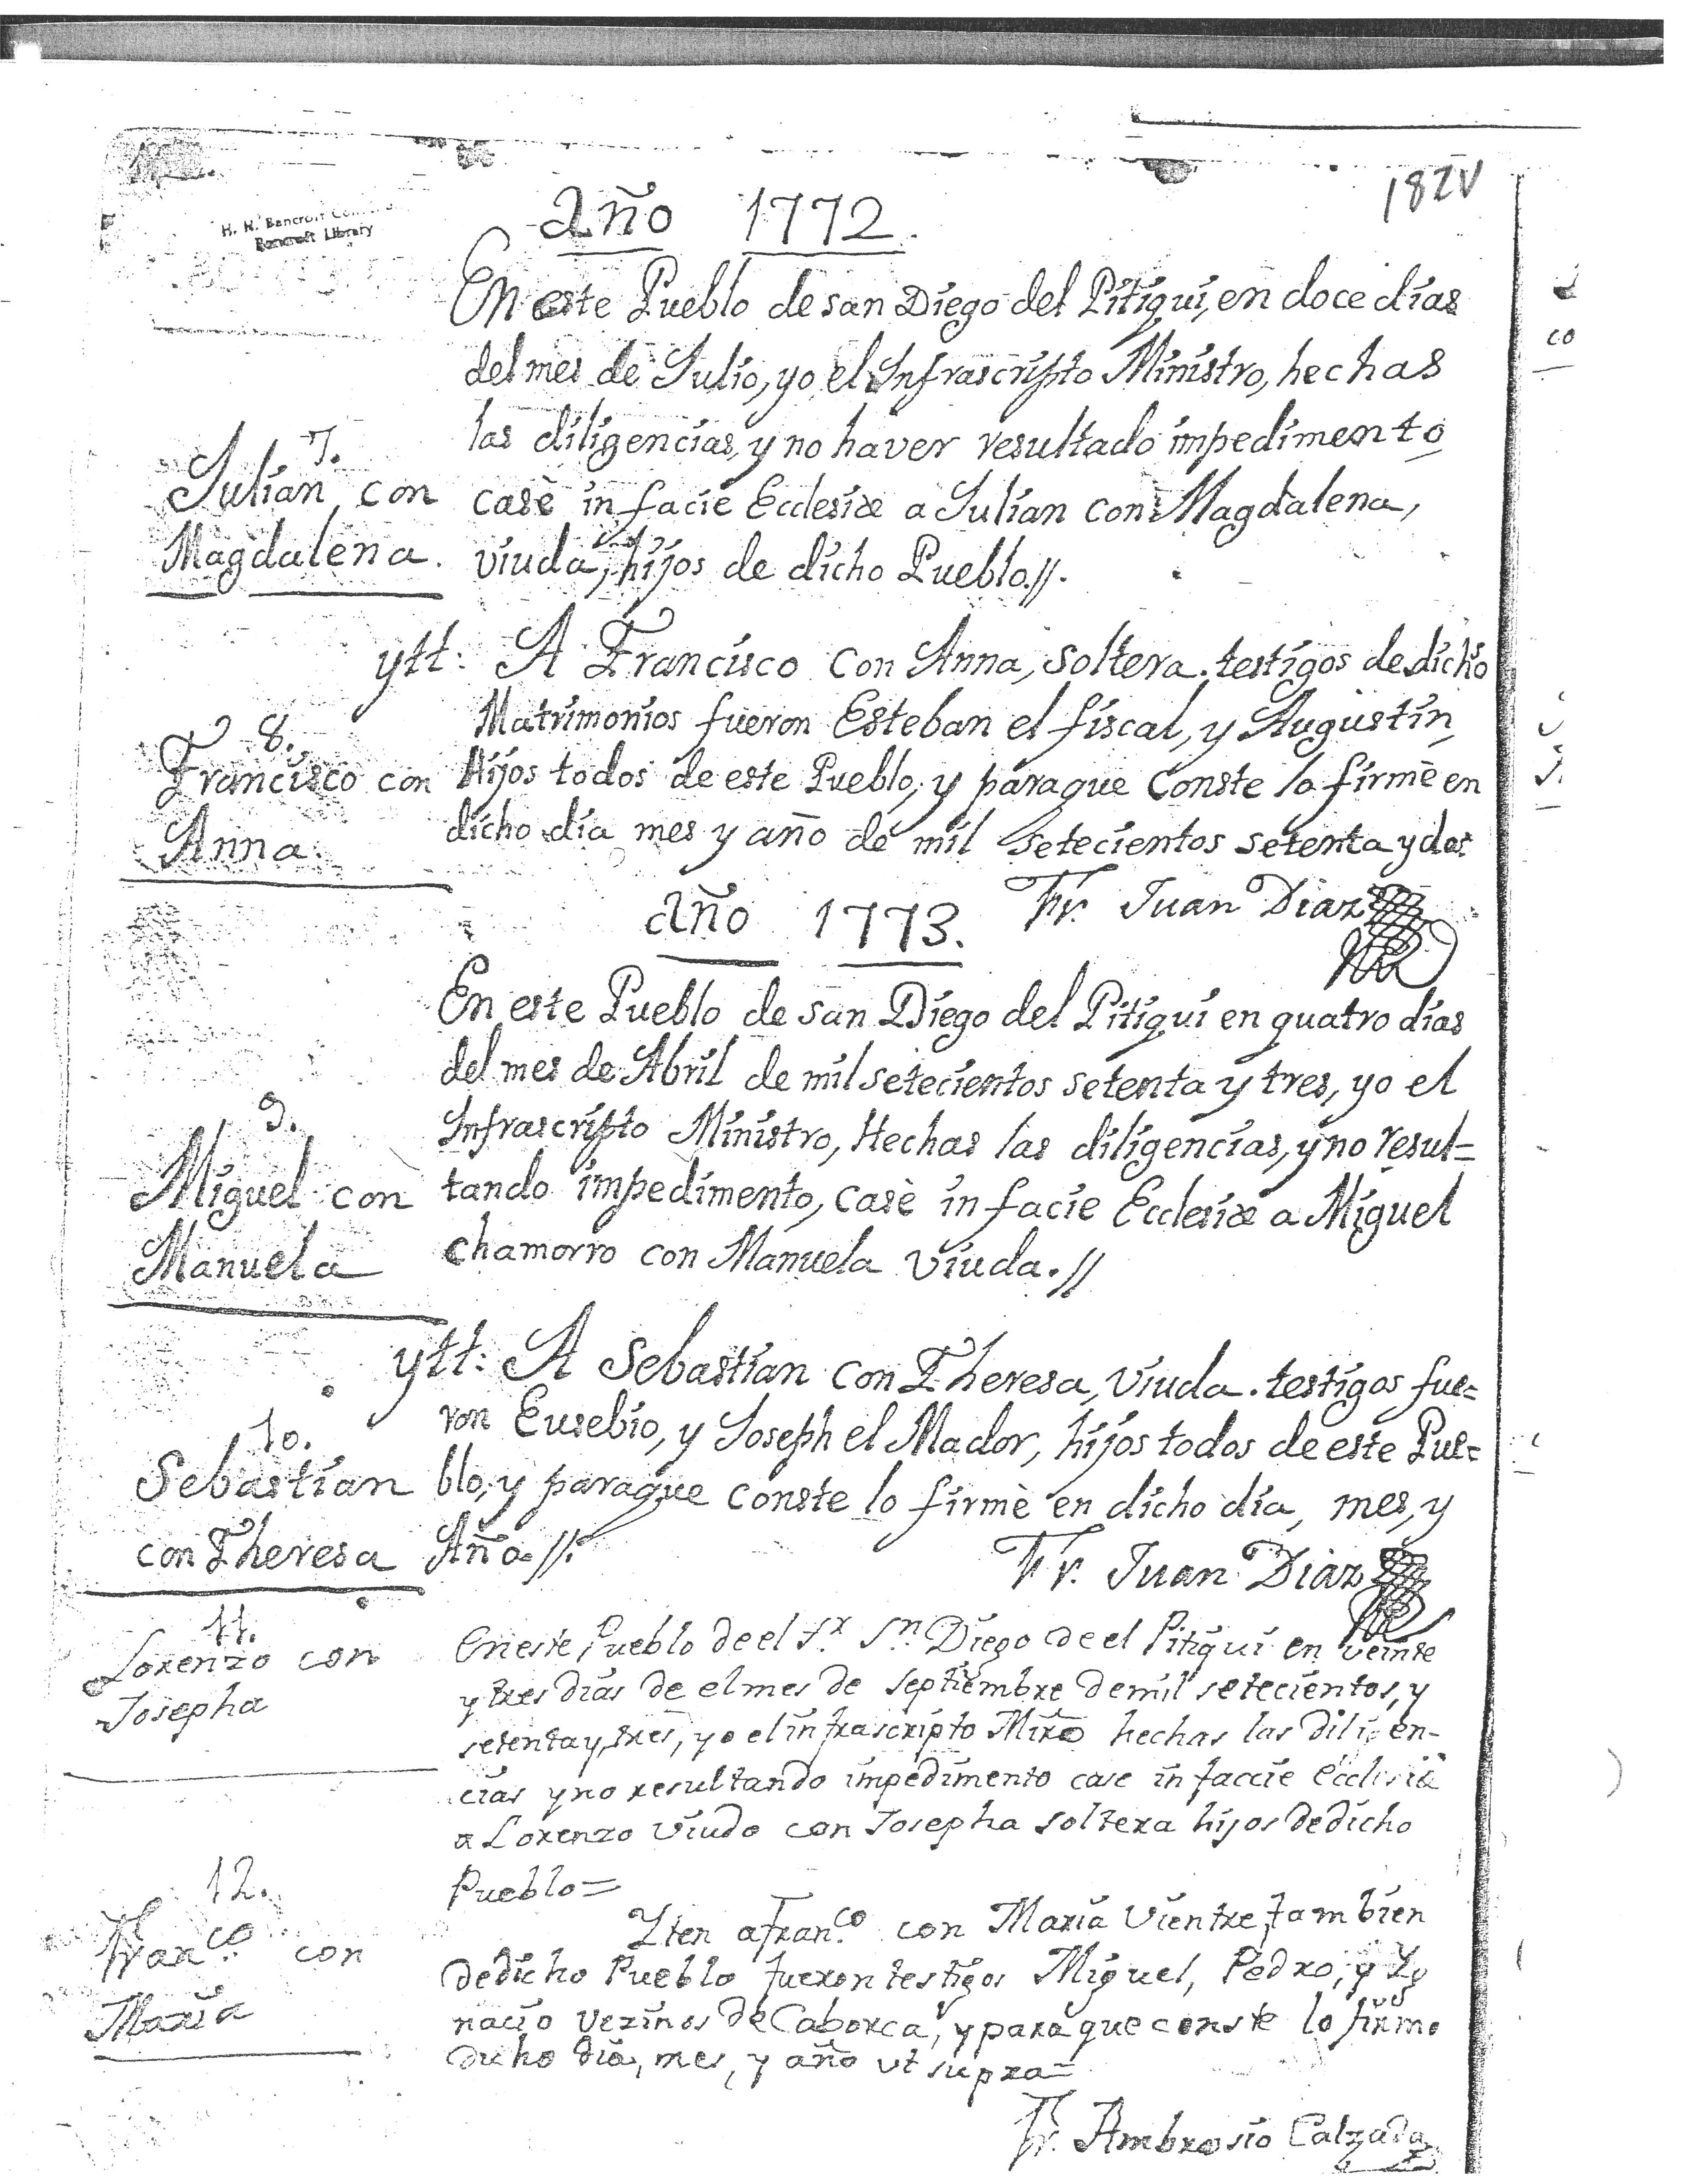 182V
H. H. Bancroft
Bancroft Library
Año 1772.
En este Pueblo de san Diego del Pitiqui, en doce dias
del mes de Julio, yo el Infrascripto Ministro, hechas
las diligencias, y no haver resultado impedimento
7.
Julian con
Magdalena.
casè in facie Ecclesiæ a Julian con Magdalena,
viuda, hijos de dicho Pueblo.//.
ytt: A Francisco con Anna, soltera. testigos de dicho
Matrimonios fueron Esteban el fiscal, y Augustin,
8.
Francisco con
Anna.
hijos todos de este Pueblo, y paraque conste lo firmè en
dicho dia mes y año de mil setecientos setenta y dos
Fr. Juan Diaz
Año 1773.
En este Pueblo de san Diego del Pitiqui en quatro dias
del mes de Abril de mil setecientos setenta y tres, yo el
Infrascripto Ministro, Hechas las diligencias, y no resul=
9.
Miguel con
Manuela
tando impedimento, casè in facie Ecclesiæ a Miguel
chamorro con Manuela viuda.//
ytt: A Sebastian con Theresa, viuda. testigos fue=
ron Eusebio, y Joseph el Mador, hijos todos de este Pue=
10.
Sebastian
con Theresa
blo, y paraque conste lo firmè en dicho dia, mes, y
Año.//.
Fr. Juan Diaz
11.
Lorenzo con
Josepha
En este Pueblo de el Sr. Sn. Diego de el Pitiqui en veinte
y tres dias de el mes de septiembre de mil setecientos, y
setenta y tres, yo el infrascripto Miro hechas las diligen-
cias y no resultando impedimento case in faccie Ecclesiæ
a Lorenzo viudo con Josepha soltera hijos de dicho
Pueblo=
12.
Franco. con
Maria
Iten a Franco. con Maria Vientre, tambien
de dicho Pueblo fueron testigos Miguel, Pedro, y Yg
nacio vezinos de Caborca, y para que conste lo firmo
dicho dia, mes, y año ut supra=
Fr. Ambrosio Calzada